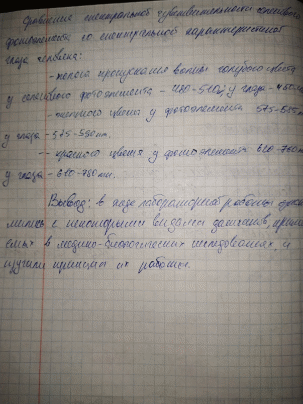 Сравнение спектральной чувствительности селенового
фотоэлемента со спектральной характеристикой
глаза человека:
- полоса пропускания волны голубого света
у селенового фотоэлемента - у глаза -
- желтого цвета у фотоэлемента 575-585нм,
у глаза - 575-590нм.
- красного цвета у фотоэлемента 620-760
у глаза - 620-780нм.
Вывод: в ходе лабораторной работы
мились с некоторыми видами датчиков, прим
емых в медико-биологических исследованиях, и
изучили принцип их работы.